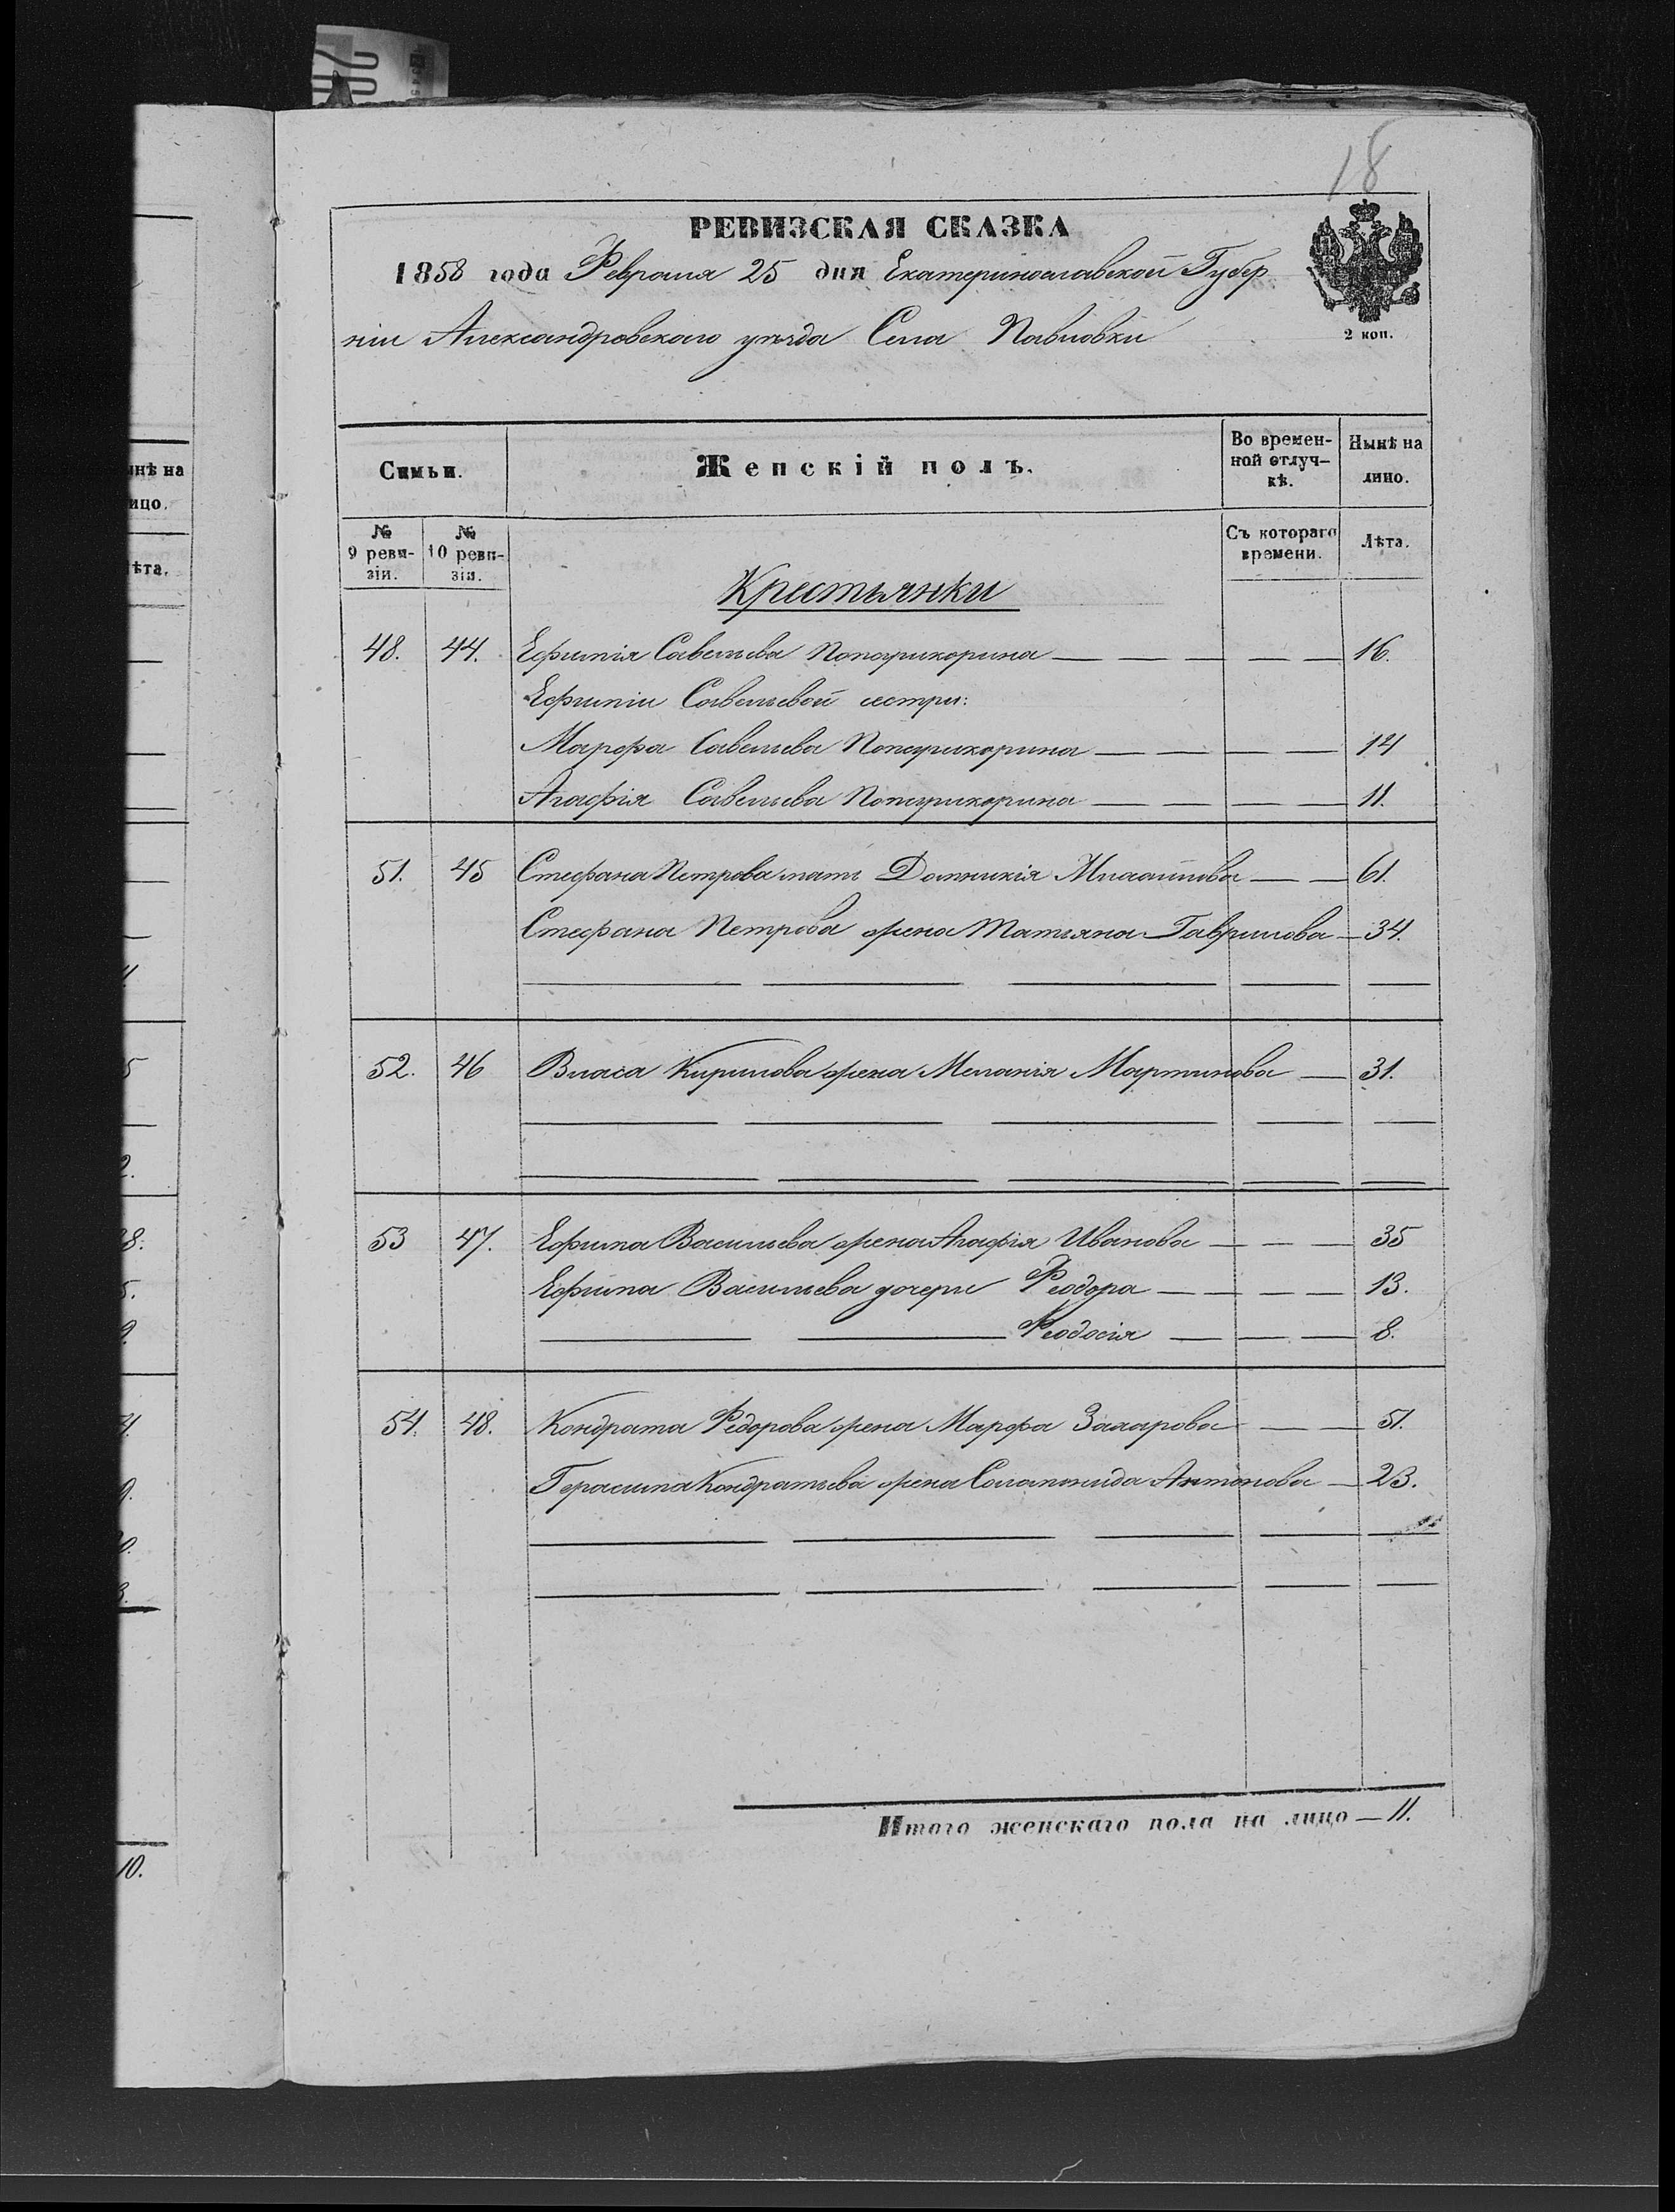 18
РЕВИЗСКАЯ СКАЗКА
1858 года Февраля 25 дня Екатеринославской Губер
ніи Александровскаго уѣзда Села Павловки
2 коп.
Симьи.
Женскій полъ.
Во времен-
ной отлуч-
кѣ.
Нынѣ на
лицо.
№
9 реви-
зіи.
№
10 реви-
зіи.
Съ котораго
времени.
Лѣта.
Крестьянки
48. 44. Ефимія Савельева 16.
Ефиміи Савельевой сестры:
Марфа Савельева 14
Агафія Савельева 11.
51. 45 Стефана Петрова мать Домникія Михайлова 61.
Стефана Петрова жена Татьяна Гаврилова 34.
52. 46 Власа Кирилова жена Меланія Мартинова 31.
53 47. Ефима Васильева жена Агафія Иванова 35
Ефима Васильева дочери Феодора 13.
Феодосія 8.
54. 48. Кондрата Федорова жена Марфа Захарова 51.
Герасима Кондратьева жена Соломонида Антонова 23.
Итого женскаго пола на лицо 11.
инѣ на
ицо.
ѣта.
10.